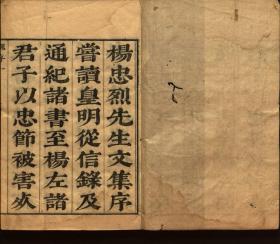 楊忠烈先生文集序
嘗讀皇明從信錄及
通紀諸書至楊左諸
君子以忠節被害次